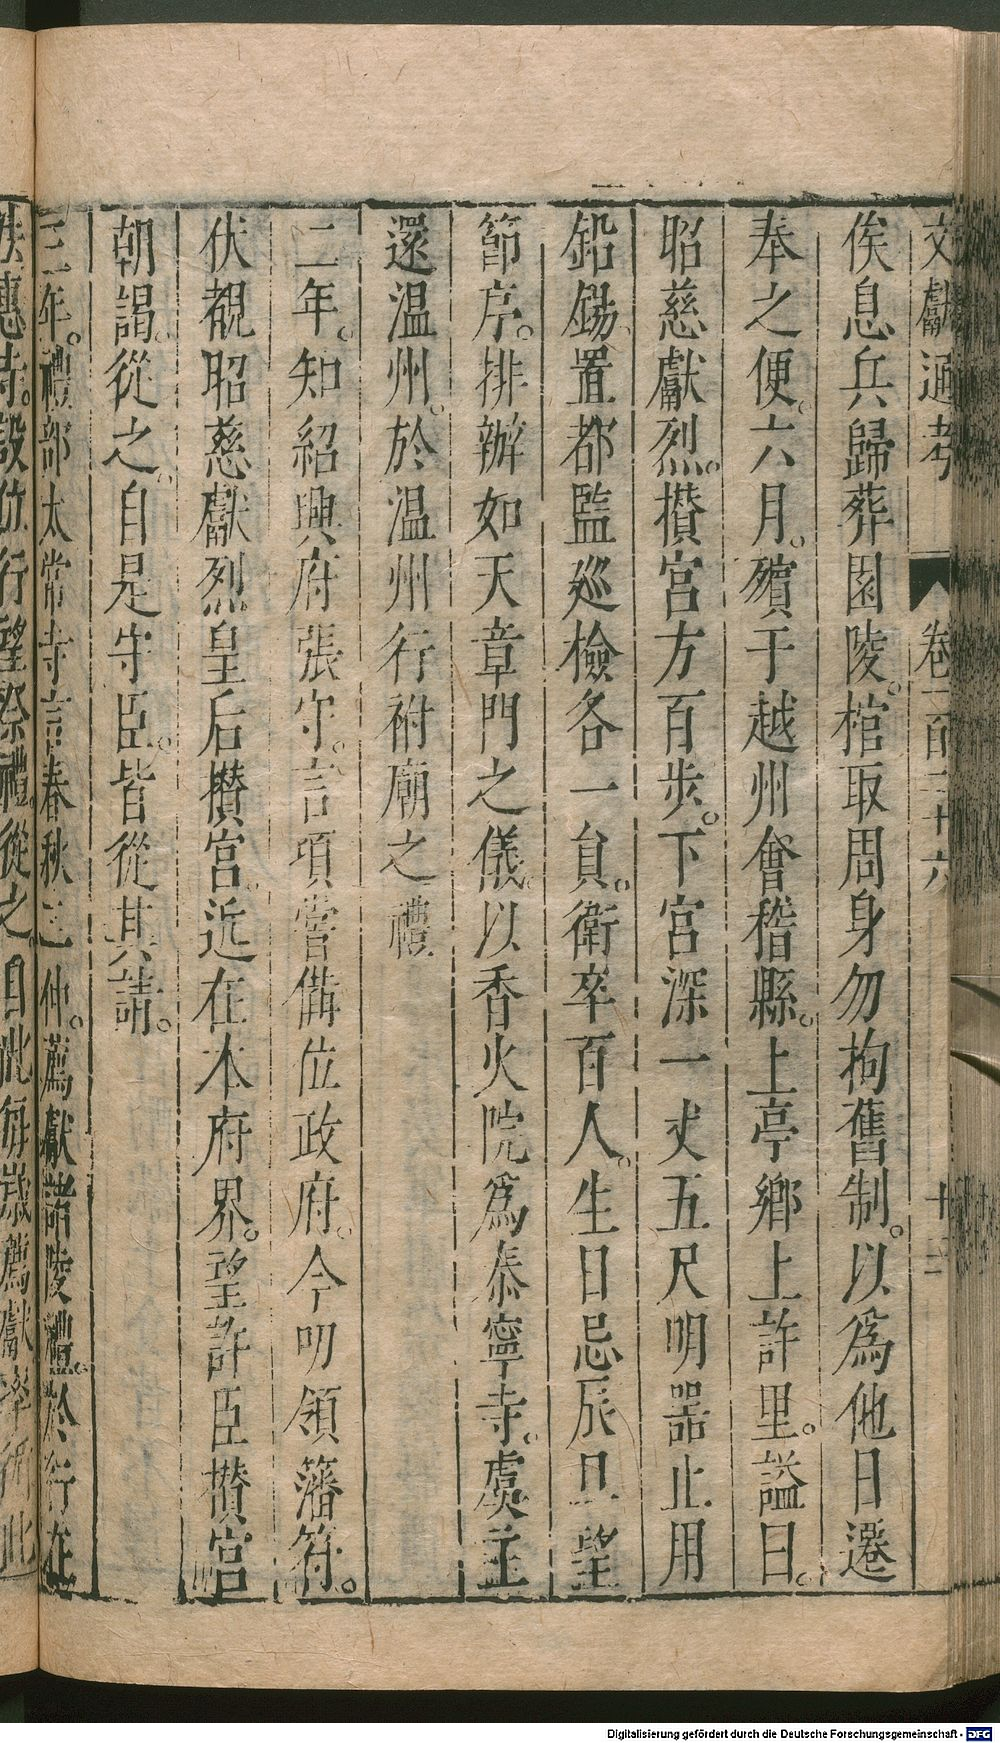 文獻通考 卷一百二十六 十三
俟息兵歸葬園陵。棺取周身勿拘舊制。以爲他日遷
奉之便。六月。殯于越州會稽縣。上亭鄉上許里。謚曰。
昭慈獻烈。攅宮方百步。下宮深一丈五尺明器止用
鉛錫。置都監巡檢各一員。衛卒百人。生日忌辰旦望
節序。排辦如天章門之儀。以香火院爲泰寧寺。虞主
還温州。於温州行祔廟之禮
二年。知紹興府張守。言項嘗備位政府。今叨領藩符。
伏覩昭慈獻烈皇后攅宮。近在本府界。望許臣攅宮
朝謁。從之。自是守臣。皆從其請。
三年。禮部太常寺言春秋二仲。薦獻諸陵禮。於行在
法惠寺。設位行望祭禮。從之。自此每歲薦獻準此
Digitalisierung gefördert durch die Deutsche Forschungsgemeinschaft - DFG